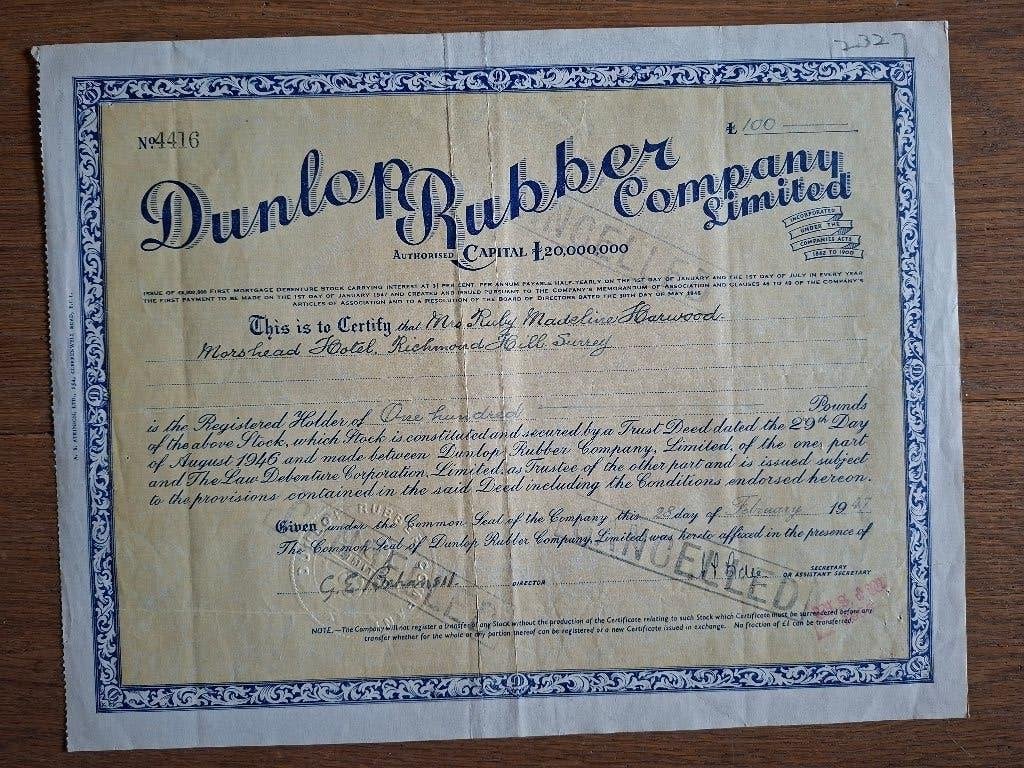 12327
No 4416
£ 100
Dunlop Rubber Company Limited
Authorised Capital £20,000,000
INCORPORATED
UNDER THE
COMPANIES ACTS
1862 TO 1900
ISSUE OF FIRST MORTGAGE DEBENTURE STOCK CARRYING INTEREST AT PER CENT. PER ANNUM PAYABLE HALF-YEARLY ON THE 1ST DAY OF JANUARY AND THE 1ST DAY OF JULY IN EVERY YEAR
THE FIRST PAYMENT TO BE MADE ON THE 1ST DAY OF JANUARY 1947 AND CREATED AND ISSUED PURSUANT TO THE COMPANY'S MEMORANDUM OF ASSOCIATION AND CLAUSES 46 TO 49 OF THE COMPANY'S
ARTICLES OF ASSOCIATION AND TO A RESOLUTION OF THE BOARD OF DIRECTORS DATED THE 30TH DAY OF MAY 1946
This is to Certify that Mrs Ruby Madeline Harwood
Morshead Hotel, Richmond Hill Surrey
is the Registered Holder of One hundred Pounds
of the above Stock, which Stock is constituted and secured by a Trust Deed dated the 29th Day
of August 1946 and made between Dunlop Rubber Company, Limited, of the one part
and The Law Debenture Corporation, Limited, as Trustee of the other part and is issued subject
to the provisions contained in the said Deed including the Conditions endorsed hereon.
Given under the Common Seal of the Company this 28 day of February 1947
The Common Seal of Dunlop Rubber Company, Limited, was hereto affixed in the presence of
DIRECTOR
SECRETARY
OR ASSISTANT SECRETARY
NOTE.—The Company will not register a transfer of any Stock without the production of the Certificate relating to such Stock which Certificate must be surrendered before any
transfer whether for the whole or any portion thereof can be registered or a new Certificate issued in exchange. No fraction of £1 can be transferred.
CANCELLED
CANCELLED
CANCELLED